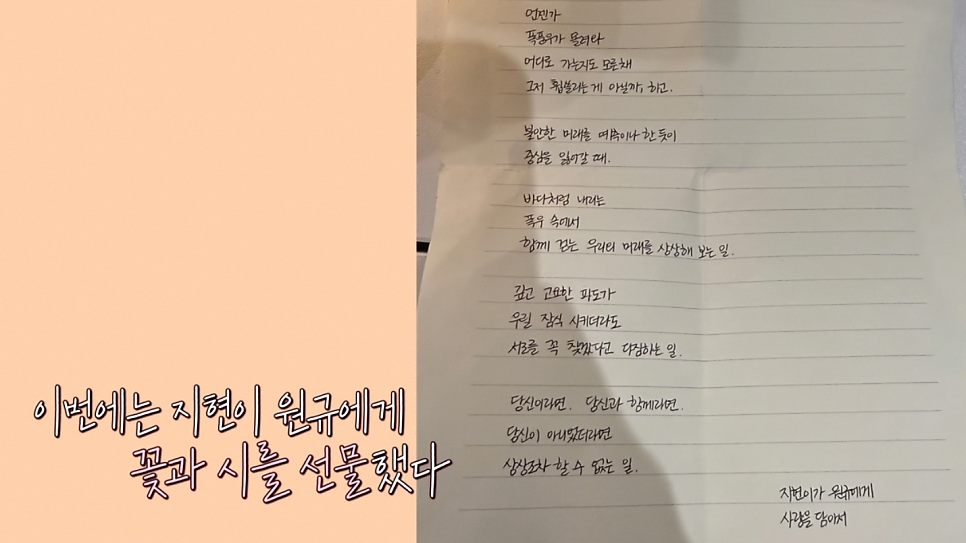 언젠가
폭풍우가 몰려와
어디로 가는지도 모른채
그저 휩쓸리는게 아닐까, 하고.
불안한 미래를 예측이나 한듯이
중심을 잃어갈 때.
바다처럼 내리는
폭우 속에서
함께 걷는 우리의 미래를 상상해 보는 일.
깊고 고요한 파도가
우릴 잠식 시키더라도
서로를 꼭 찾겠다고 다짐하는 일.
당신이라면. 당신과 함께라면.
당신이 아니었더라면
상상조차 할 수 없는 일.
지현이가 원규에게
사랑을 담아서
이번에는 지현이 원규에게
꽃과 시를 선물했다